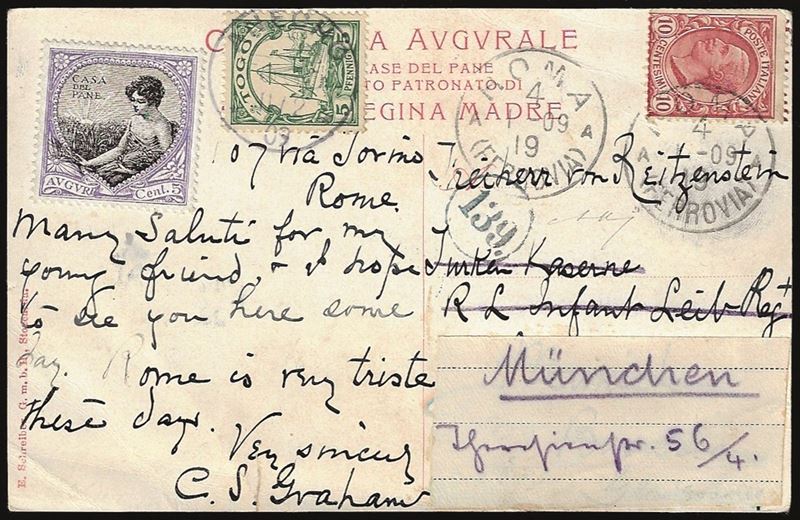 CASA
DEL
PANE
AUGURI
Cent. 5
TOGO
5 PFENNIG 5
09
A AVGVRALE
ASE DEL PANE
TO PATRONATO DI
REGINA MADRE
ROMA
4
1 09
19
(FERROVIA)
POSTE ITALIANE
10 CENTESIMI 10
4
09
FERROVIA
139
107 via Torino
Rome.
Many Saluti for my
young friend, & I hope
to see you here some
day. Rome is very triste
these days.
Very sincerely
C. S. Graham
Freiherr von Reitzenstein
Türken Kaserne
R L Infant Leib Regt
München
Theresienstr. 56/4.
E. Schreiber G. m. b. H., Stuttgart